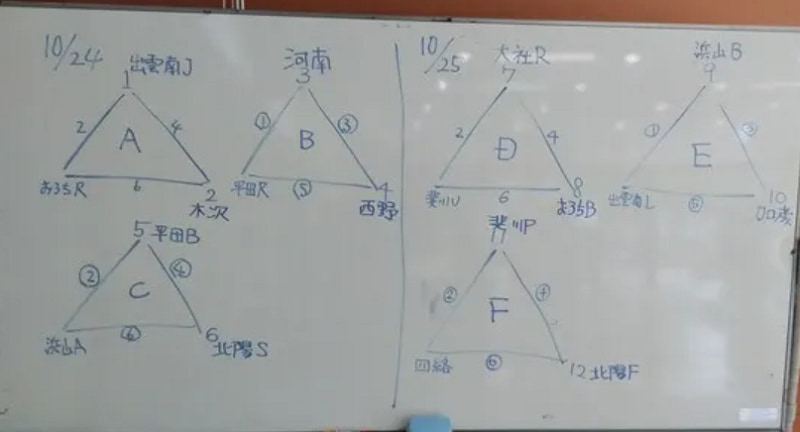 10/24
出雲南J
1
2
A
4
おろちR
6
2
木次
河南
3
①
B
③
平田R
⑤
4
西野
5 平田B
②
C
④
浜山A
⑥
6
北陽S
10/25
大社R
7
2
D
4
斐川U
6
8
おろちB
浜山B
9
①
E
③
出雲南L
⑤
10
斐川P
②
F
④
四絡
⑥
12 北陽F